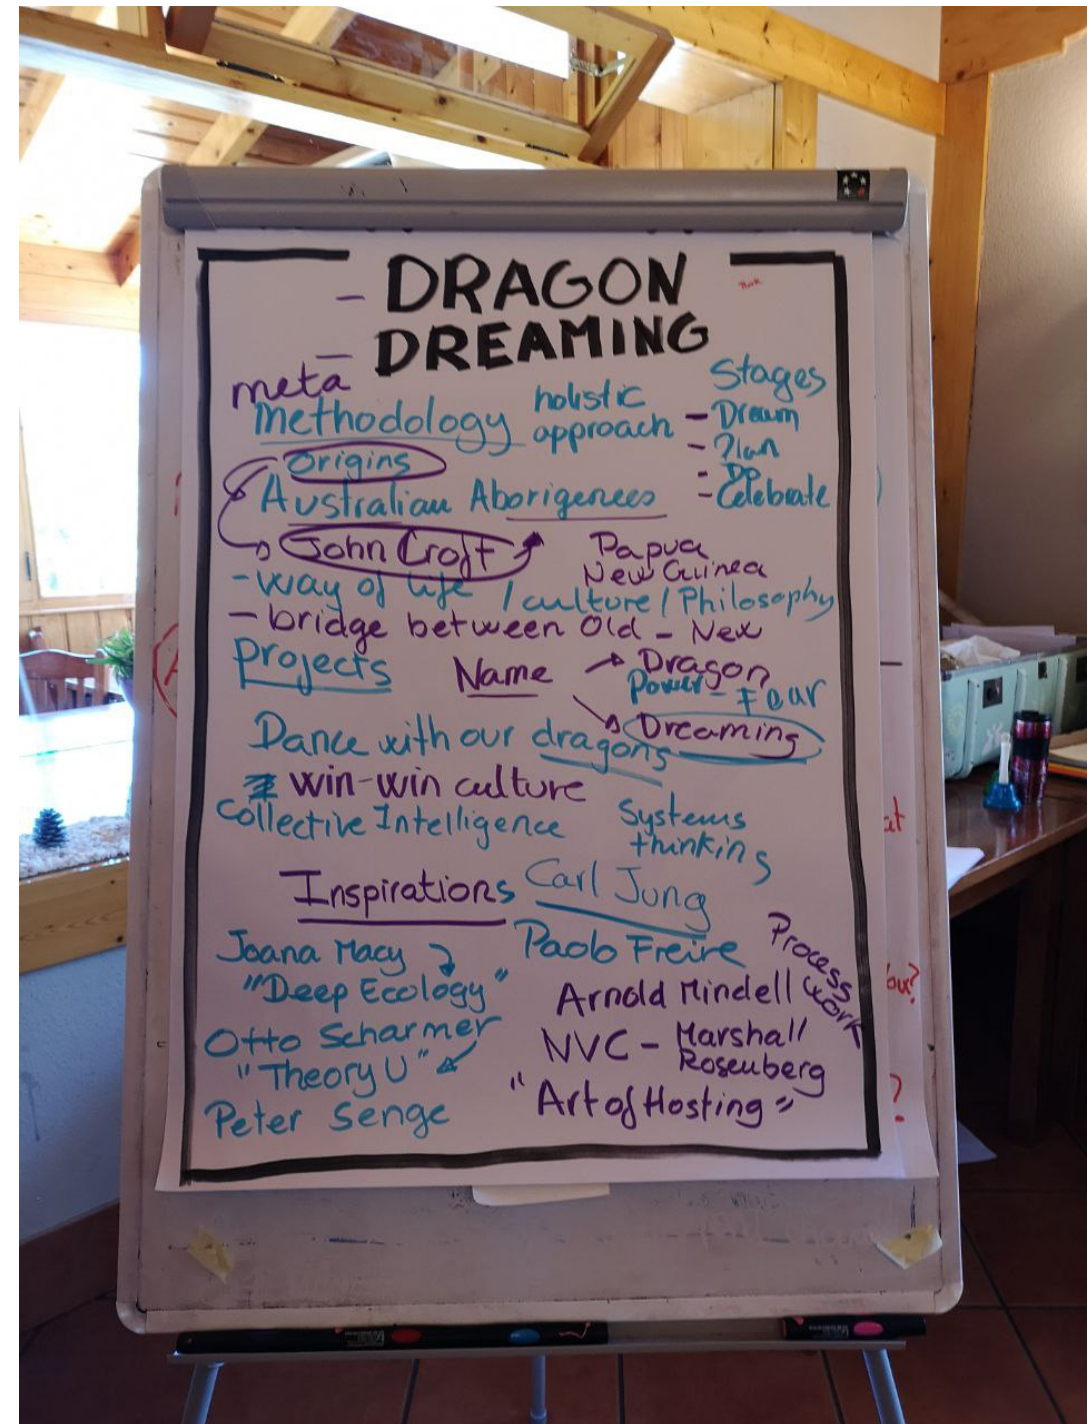 - DRAGON
- DREAMING
meta
Methodology
holistic
approach
Stages
- Dream
- Plan
- Do
- Celebrate
origins
Australian Aborigenees
John Croft
Papua
New Guinea
- way of life / culture / Philosophy
- bridge between Old - New
Projects
Name
Dragon
Power - Fear
Dreaming
Dance with our dragons
win-win culture
Collective Intelligence
Systems
thinking
Inspirations
Carl Jung
Joana Macy
"Deep Ecology"
Otto Scharmer
"Theory U"
Peter Senge
Paolo Freire
Arnold Mindell
Process
work
NVC - Marshall
Rosenberg
"Art of Hosting"
at
You?
?